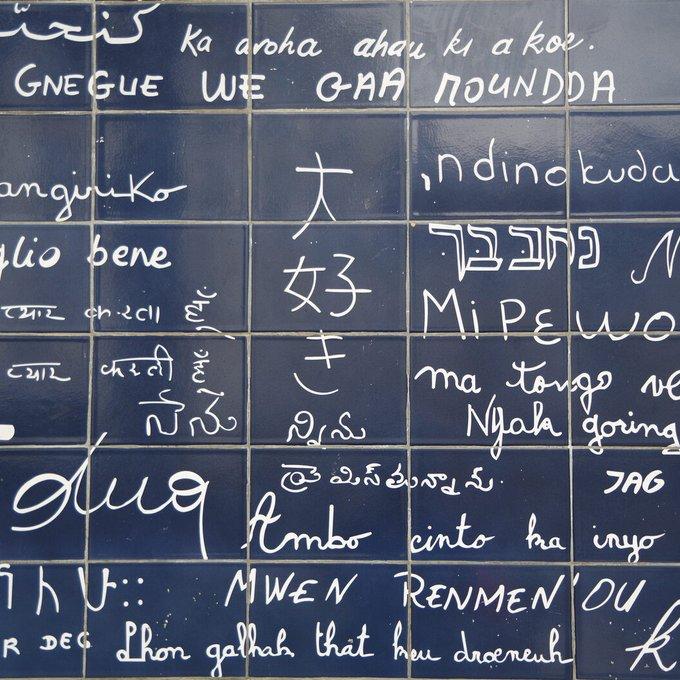 Ka aroha ahau ki a koe.
GNEGUE WE GAA MOUNDDA
angiriko
ndinokuda
大好き
glio bene
נחבבך
प्यार करता
MIPEWO
प्यार करती
ma tongo
Nyak goring
నేను
నిన్ను
duq
ప్రేమిస్తున్నాను.
JAG
Ambo cinto ka inyo
MWEN RENMEN'OU
R DEG
Lhon galhak that keu droeneuh
k